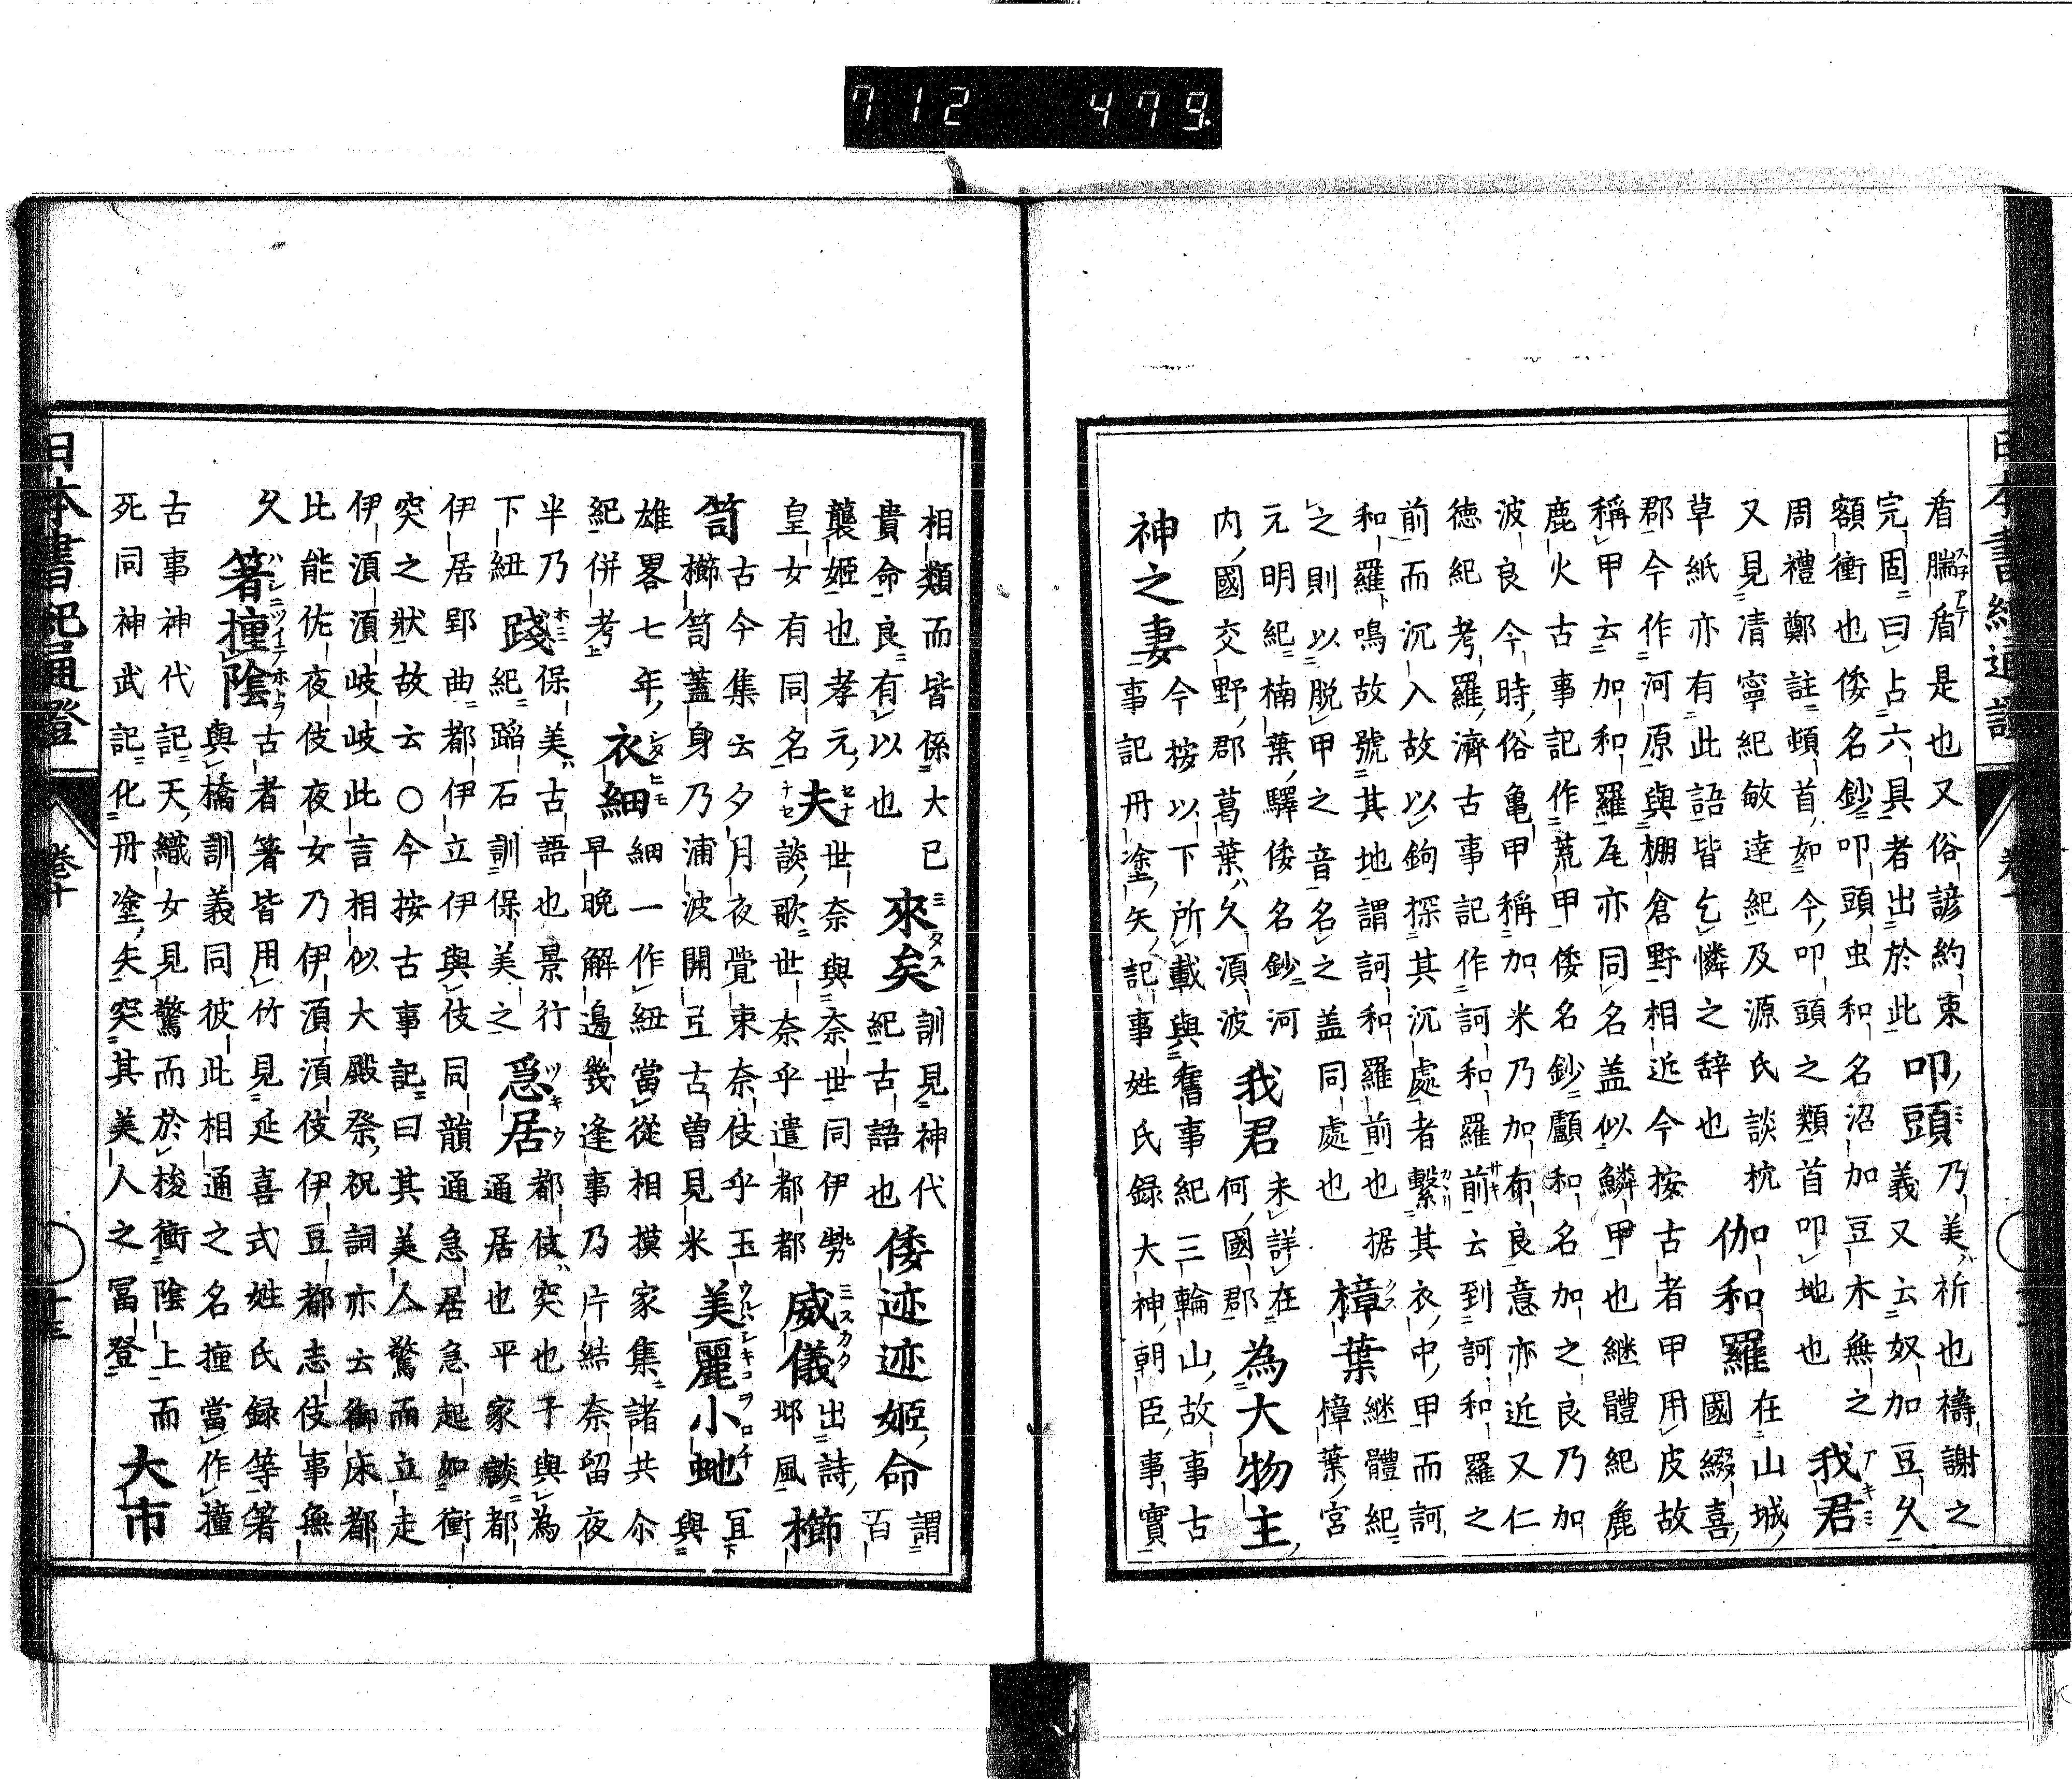 712 479.
日本書紀通證
㸔腨盾是也又俗諺約束 叩頭 乃美祈也禱謝之
完固曰占六具者出於此 義又云奴加豆久
額衝也倭名鈔叩頭虫和名沼加豆木無之 我君
周禮鄭註頓首如今叩頭之類首叩地也
又見清寧紀敏達紀及源氏談枕 伽和羅 在山城
草紙亦有此語皆乞憐之辞也 國綴喜
郡今作河原與棚倉野相近今按古者甲用皮故
稱甲云加和羅瓦亦同名盖似鱗甲也継體紀鹿
鹿火古事記作荒甲倭名鈔顱和名加之良乃加
波良今時俗亀甲稱加米乃加布良意亦近又仁
徳紀考羅濟古事記作訶和羅前云到訶和羅之
前而沉入故以鉤探其沉處者繫其衣中甲而訶
和羅鳴故號其地謂訶和羅前也据 樟葉 継體紀
之則以脱甲之音名之盖同處也 樟葉宮
元明紀楠葉驛倭名鈔河 我君 未詳在 為大物主
内國交野郡葛葉久湏波 何國郡
神之妻 今按以下所載與舊事紀三輪山故事古
事記丹塗矢記事姓氏録大神朝臣事實
相類而皆係大已 來矣 訓見神代 倭迹迹姬命 謂
貴命良有以也 紀古語也 百
襲姬也孝元 夫 世奈與奈世同伊勢 威儀 出詩
皇女有同名 談歌世奈乎遣都都 邶風 櫛
笥 古今集云夕月夜覺束奈伎乎玉 美麗小虵 苴
櫛笥蓋身乃浦波開互古曽見米 與
雄畧七年 衣細 細一作紐當從相摸家集諸共尒
紀併考 早晩解邊幾逢事乃片結奈留夜
半乃 踐 保美古語也景行 急居 都伎突也予與為
下紐 紀蹈石訓保美之 通居也平家談都
伊居郢曲都伊立伊與伎同韻通急居急起如衝
突之状故云〇今按古事記曰其美人驚而立走
伊湏湏岐岐此言相似大殿祭祝詞亦云御床都
比能佐夜伎夜女乃伊湏湏伎伊豆都志伎事無
久 箸撞陰 古者箸皆用竹見延喜式姓氏録等箸
與橋訓義同彼此相通之名撞當作撞
古事神代記天織女見驚而於梭衝陰上而 大市
死同神武記化丹塗矢突其美人之冨登
日本書紀通證 卷十